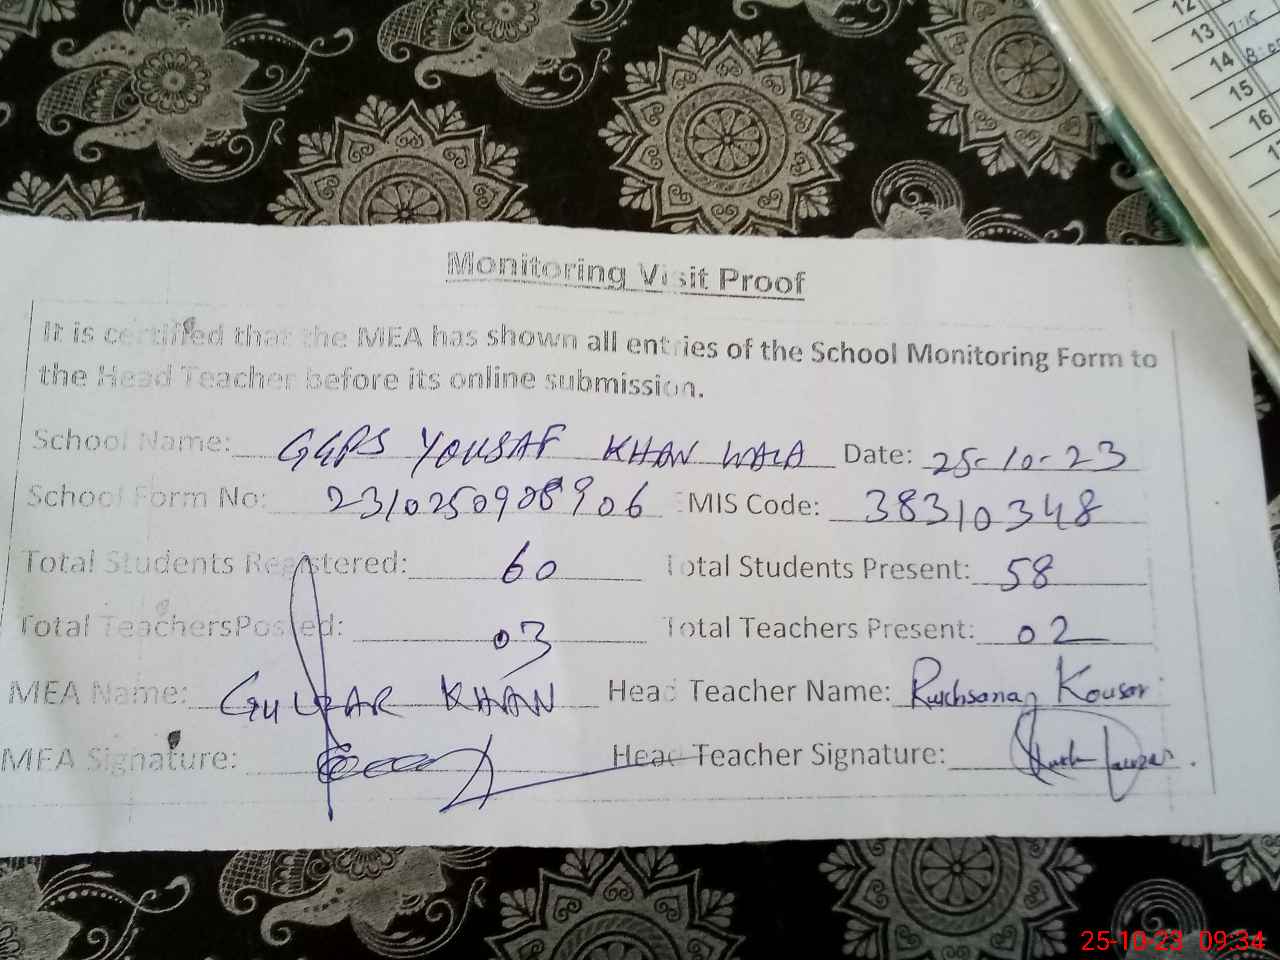 12
13 7:15
14
15
16
Monitoring Visit Proof
It is certified that the MEA has shown all entries of the School Monitoring Form to
the Head Teacher before its online submission.
School Name: GGPS YOUSAF KHAN WALA Date: 25-10-23
School Form No: 2310250908906 EMIS Code: 38310348
Total Students Registered: 60 Total Students Present: 58
Total TeachersPosted: 03 Total Teachers Present: 02
MEA Name: GULZAR KHAN Head Teacher Name: Rukhsana Kousar
MEA Signature: Head Teacher Signature:
25-10-23 09:34